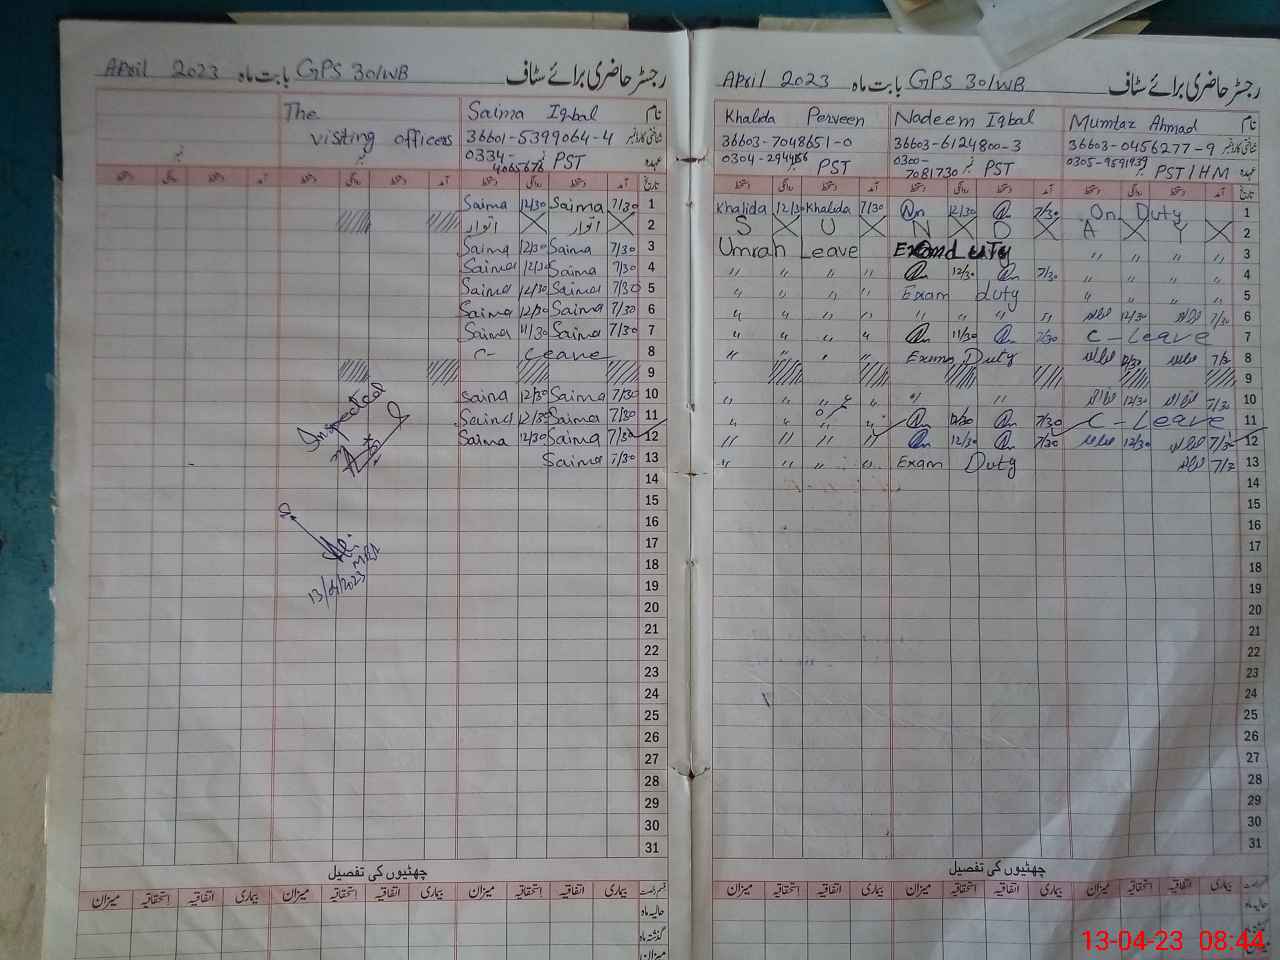 April 2023 بابت ماہ GPS 30/WB رجسٹر حاضری برائے سٹاف
The
visiting officers
نمبر نمبر
Saima Iqbal
36601-5399064-4
0334-4065676 نمبر PST
دستخط روانگی دستخط آمد دستخط روانگی دستخط آمد دستخط روانگی دستخط آمد تاریخ
Saima 12/30 Saima 7/30 1
اتوار اتوار 2
Saima 12/30 Saima 7/30 3
Saima 12/30 Saima 7/30 4
Saima 12/30 Saima 7/30 5
Saima 12/30 Saima 7/30 6
Saima 11/30 Saima 7/30 7
C- Leave 8
9
Saima 12/30 Saima 7/30 10
Saima 12/30 Saima 7/30 11
Saima 12/30 Saima 7/30 12
Saima 7/30 13
Inspected
14
15
16
17
18
13/04/2023
19
20
21
22
23
24
25
26
27
28
29
30
31
چھٹیوں کی تفصیل
میزان استحقاقیہ اتفاقیہ بیماری میزان استحقاقیہ اتفاقیہ بیماری میزان استحقاقیہ اتفاقیہ بیماری قسم رخصت
حالیہ ماہ
گذشتہ ماہ
میزان
April 2023 بابت ماہ GPS 30/WB رجسٹر حاضری برائے سٹاف
Khalida Perveen Nadeem Iqbal Mumtaz Ahmad نام
36603-7048651-0 36603-6124800-3 36603-0456277-9 شناختی کارڈ نمبر
0304-294456 PST 0300-7081730 نمبر PST 0305-9591939 PST/HM عہدہ
دستخط روانگی دستخط آمد دستخط روانگی دستخط آمد دستخط روانگی دستخط آمد تاریخ
Khalida 12/30 Khalida 7/30 12/30 7/30 On Duty 1
S U N D A Y 2
Umrah Leave Exam Duty " " " " 3
" " " " 12/30 7/30 " " " " 4
" " " " Exam duty " " " " 5
" " " " " " " " 12/30 7/30 6
" " " " 11/30 7/30 C-Leave 7
" " " " Exam Duty 12/30 7/30 8
9
" " " " " " 12/30 7/30 10
" " " " 12/30 7/30 C-Leave 11
" " " " 12/30 7/30 12/30 7/30 12
" " " " Exam Duty 13
14
15
16
17
18
19
20
21
22
23
24
25
26
27
28
29
30
31
چھٹیوں کی تفصیل
میزان استحقاقیہ اتفاقیہ بیماری میزان استحقاقیہ اتفاقیہ بیماری میزان استحقاقیہ اتفاقیہ بیماری
حالیہ ماہ
13-04-23 08:44